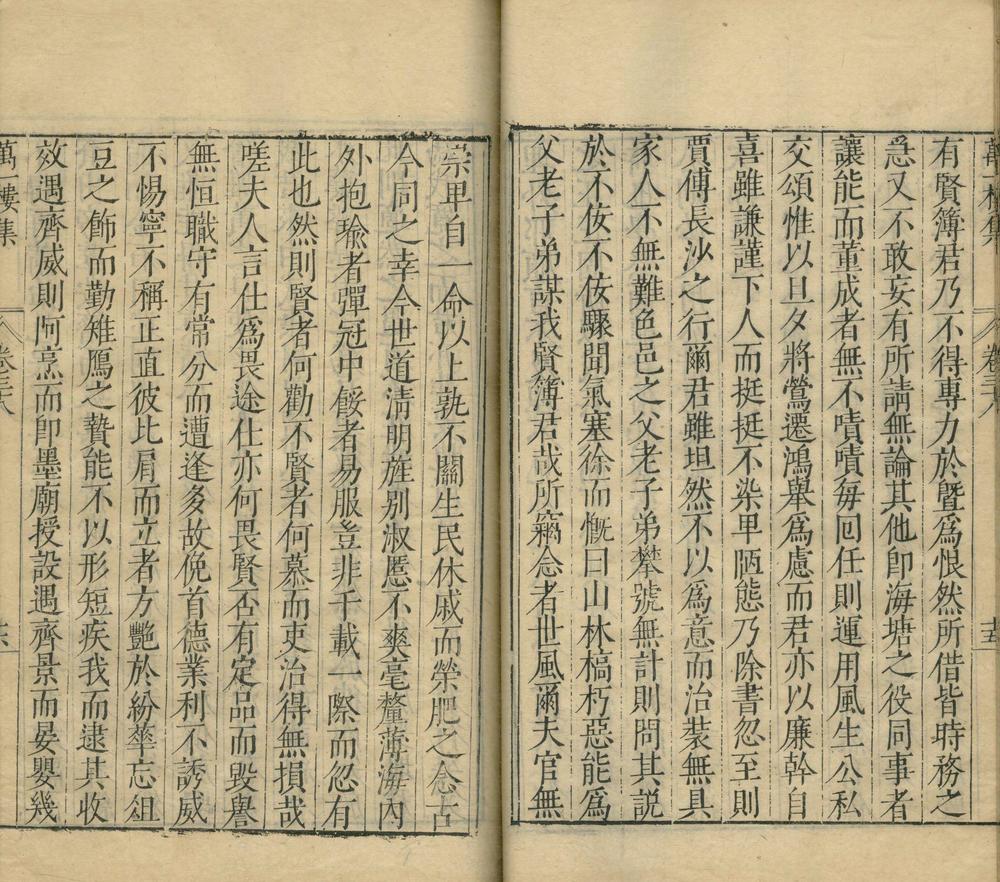 萬一樓集
卷三十八
十五
有賢簿君乃不得專力於暨爲恨然所借皆時務之
急又不敢妄有所請無論其他卽海塘之役同事者
讓能而董成者無不嘖嘖每回任則運用風生公私
交頌惟以旦夕將鶯遷鴻舉爲慮而君亦以廉幹自
喜雖謙謹下人而挺挺不染卑陋態乃除書忽至則
賈傅長沙之行爾君雖坦然不以爲意而治裝無具
家人不無難色邑之父老子弟攀號無計則問其説
於不佞不佞驟聞氣塞徐而慨曰山林槁朽惡能爲
父老子弟謀我賢簿君哉所竊念者世風爾夫官無
崇卑自一命以上孰不關生民休戚而榮肥之念古
今同之幸今世道淸明旌别淑慝不爽毫釐薄海內
外抱瑜者彈冠中餒者易服豈非千載一際而忽有
此也然則賢者何勸不賢者何慕而吏治得無損哉
嗟夫人言仕爲畏途仕亦何畏賢否有定品而毀譽
無恒職守有常分而遭逢多故俛首德業利不誘威
不惕寧不稱正直彼比肩而立者方艷於紛華忘俎
豆之飾而勤雉鴈之贄能不以形短疾我而逮其收
效遇齊威則阿烹而卽墨廟授設遇齊景而晏嬰幾
萬一樓集
卷三十八